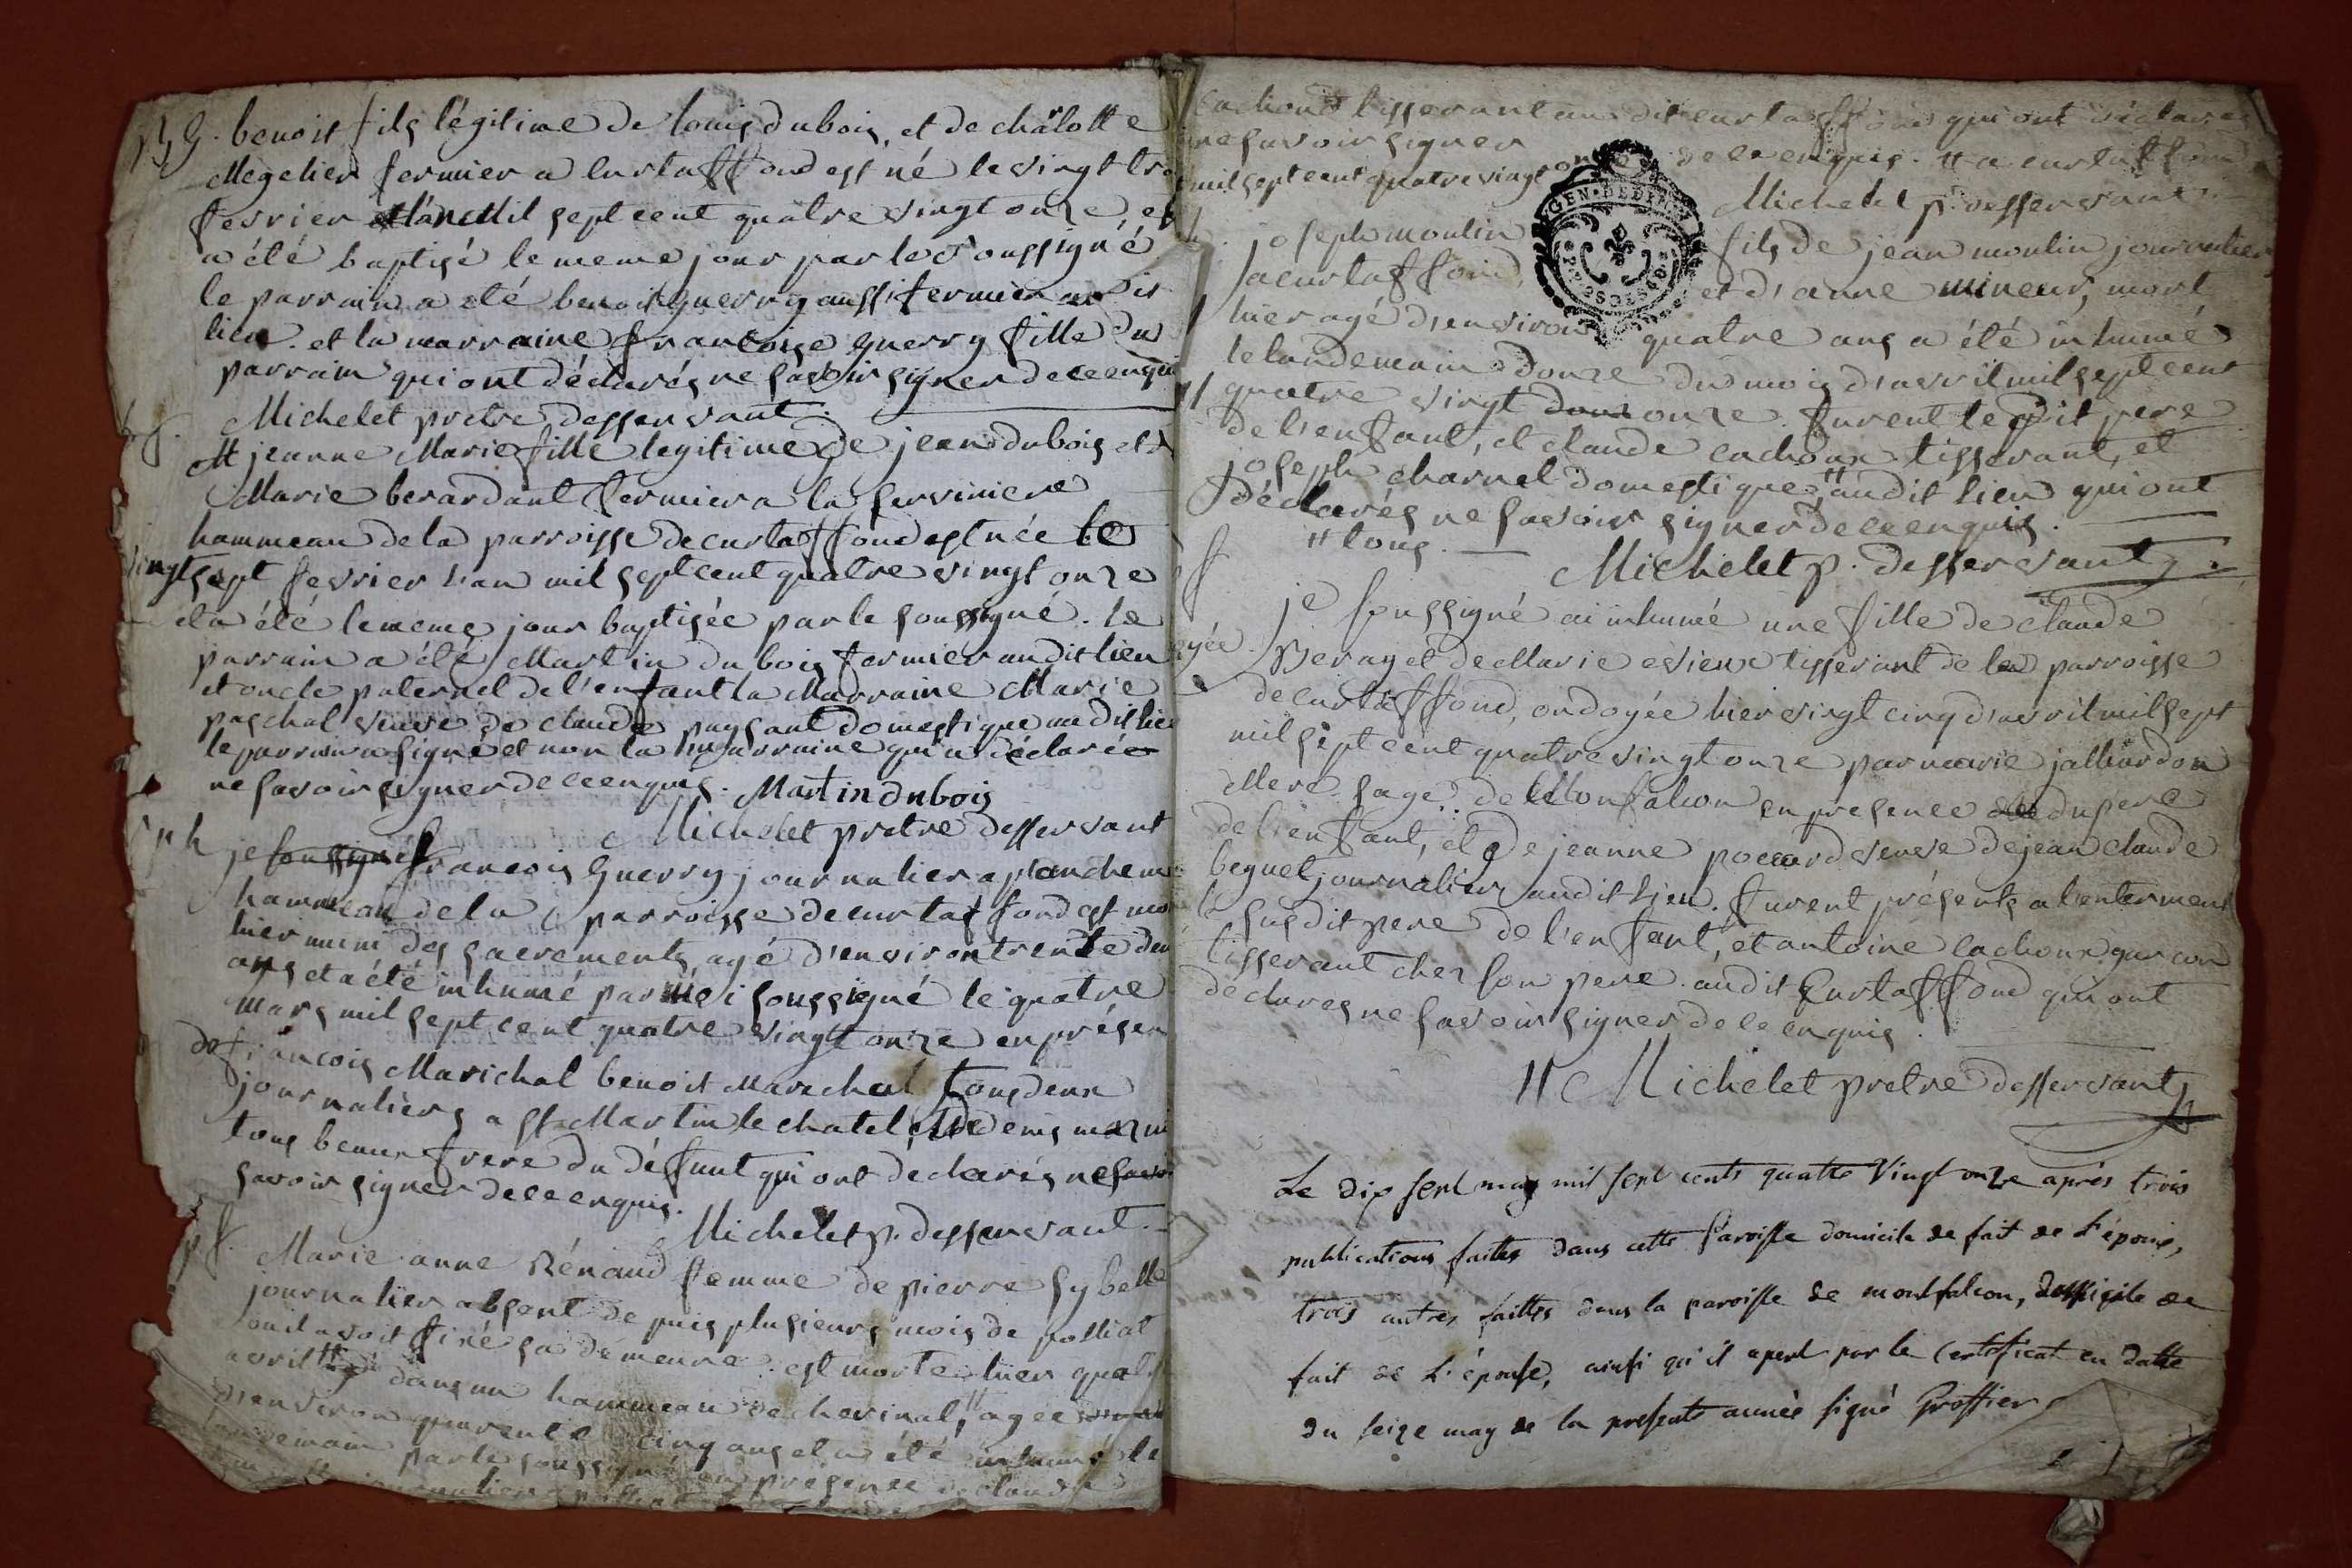 B G. benoist fils légitime de louis dubois et de charlotte
Megelier fermier a curtaffond est né le vingt tro
fevrier l'an Mil sept cent quatre vingt onze et
a été baptisé le meme jour par le soussigné
le parrain a été benoist guerry aussi fermier au dit
lieu. et la marraine francoise guerry fille du
parrain qui ont déclarés ne savoir signer de ce enquis
Michelet pretre desservant.
jeanne Marie fille legitime de jean dubois et d
Marie berardant fermier a la serviniere
hammeau de la parroisse de curtaffond est née le
vingt sept fevrier l'an mil sept cent quatre vingt onze
et a été le meme jour baptisée par le soussigné. le
parrain a été Martin dubois fermier au dit lieu
et oncle paternel de l'enfant la Marraine Marie
paschal veuve de claude paysant domestique au dit lieu
le parrain a signé et non la marraine qui a déclarée
ne savoir signer de ce enquis. Martin dubois
Michelet pretre desservant
je soussigné francois Guerry journalier a planchem
hammeau de la parroisse de curtaffond est mor
hier muni des sacrements agé d'environ trente deu
ans et a été inhumé par moi soussigné le quatre
mars mil sept cent quatre vingt onze en présen
de francois Marichal benoist Marechal tous deux
journaliers a st Martin le chatel, et denis
tous beaux frere du défunt qui ont declarés ne savoi
savoir signer de ce enquis.
Michelet p. desservant.
Marie anne Rénaud femme de pierre sybelle
journalier absent de puis plusieurs mois de polliat
ou il avoit fixé sa démeure. est morte hier quat
avril dans un hammeau de cherinal, agée
d'environ quarente cinq ans et a été inhumé le
lendemain par le soussigné en presence de claude
cachoux tisserant au dit curtaffond qui ont déclarés
ne savoir signer de ce enquis. # a curtaffond
mil sept cent quatre vingt onze
Michelet p. desservant
joseph moulin fils de jean moulin journalier
a curtaffond, et d'anne mineur, mort
hier agé d'environ quatre ans a été inhumé
le landemain douze du mois d'avril mil sept cent
quatre vingt onze. furent le dit pere
de l'enfant, et claude cachoux tisserant, et
joseph charnel domestique, # au dit lieu qui ont
déclarés ne savoir signer de ce enquis.
# tous.
Michelet p. desservant.
je soussigné ai inhumé une fille de claude
Beray et de Marie evieux tisserant de la parroisse
de curtaffond, ondoyée hier vingt cinq d'avril mil sept
mil sept cent quatre vingt onze par marie jalliardon
Mere sage de Monfalcon en presence du pere
de l'enfant, et de jeanne pocard veuve de jean claude
beguet journalier au dit lieu. furent présents a l'enterment
le susdit pere de l'enfant, et antoine cachoux garcon
tisserant chez son pere au dit Curtaffond qui ont
déclarés ne savoir signer de ce enquis.
Michelet pretre desservant
Le dix sept may mil sept cents quatte vingt onze aprés trois
publications faittes dans cette Paroisse domicile de fait de L'époux,
trois autres faittes dans la paroisse de montfalcon, domicile de
fait de L'épouse, ainsi qu'il apert par le Certificat en datte
du seize may de la presente année signé Groffier
GEN. DE DIJON